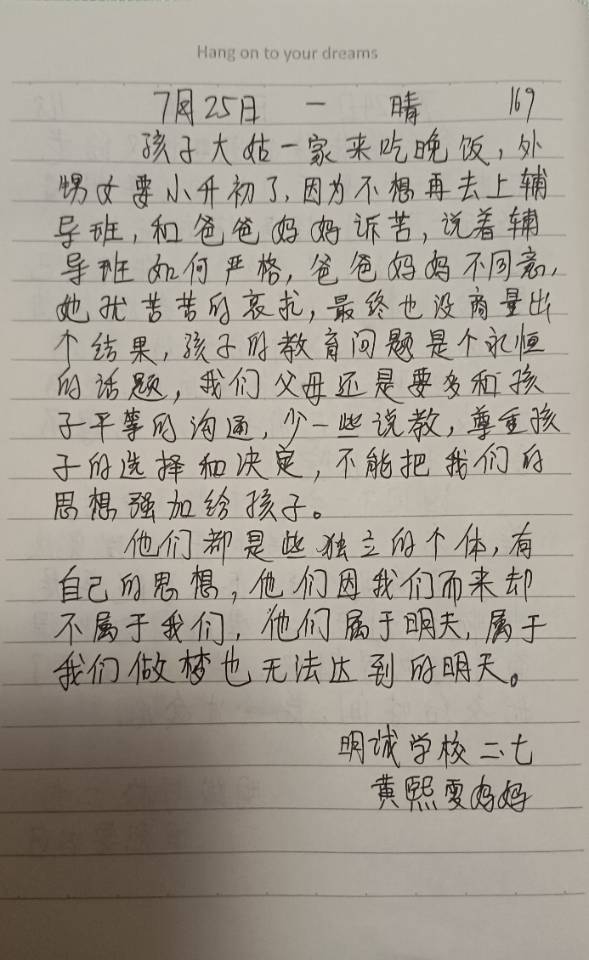 Hang on to your dreams
7月25日 一 晴 169
孩子大姑一家来吃晚饭，外
甥女要小升初了，因为不想再去上辅
导班，和爸爸妈妈诉苦，说着辅
导班如何严格，爸爸妈妈不同意，
她就苦苦的哀求，最终也没商量出
个结果，孩子的教育问题是个永恒
的话题，我们父母还是要多和孩
子平等的沟通，少一些说教，尊重孩
子的选择和决定，不能把我们的
思想强加给孩子。
他们都是些独立的个体，有
自己的思想，他们因我们而来却
不属于我们，他们属于明天，属于
我们做梦也无法达到的明天。
明诚学校二.七
黄熙雯妈妈